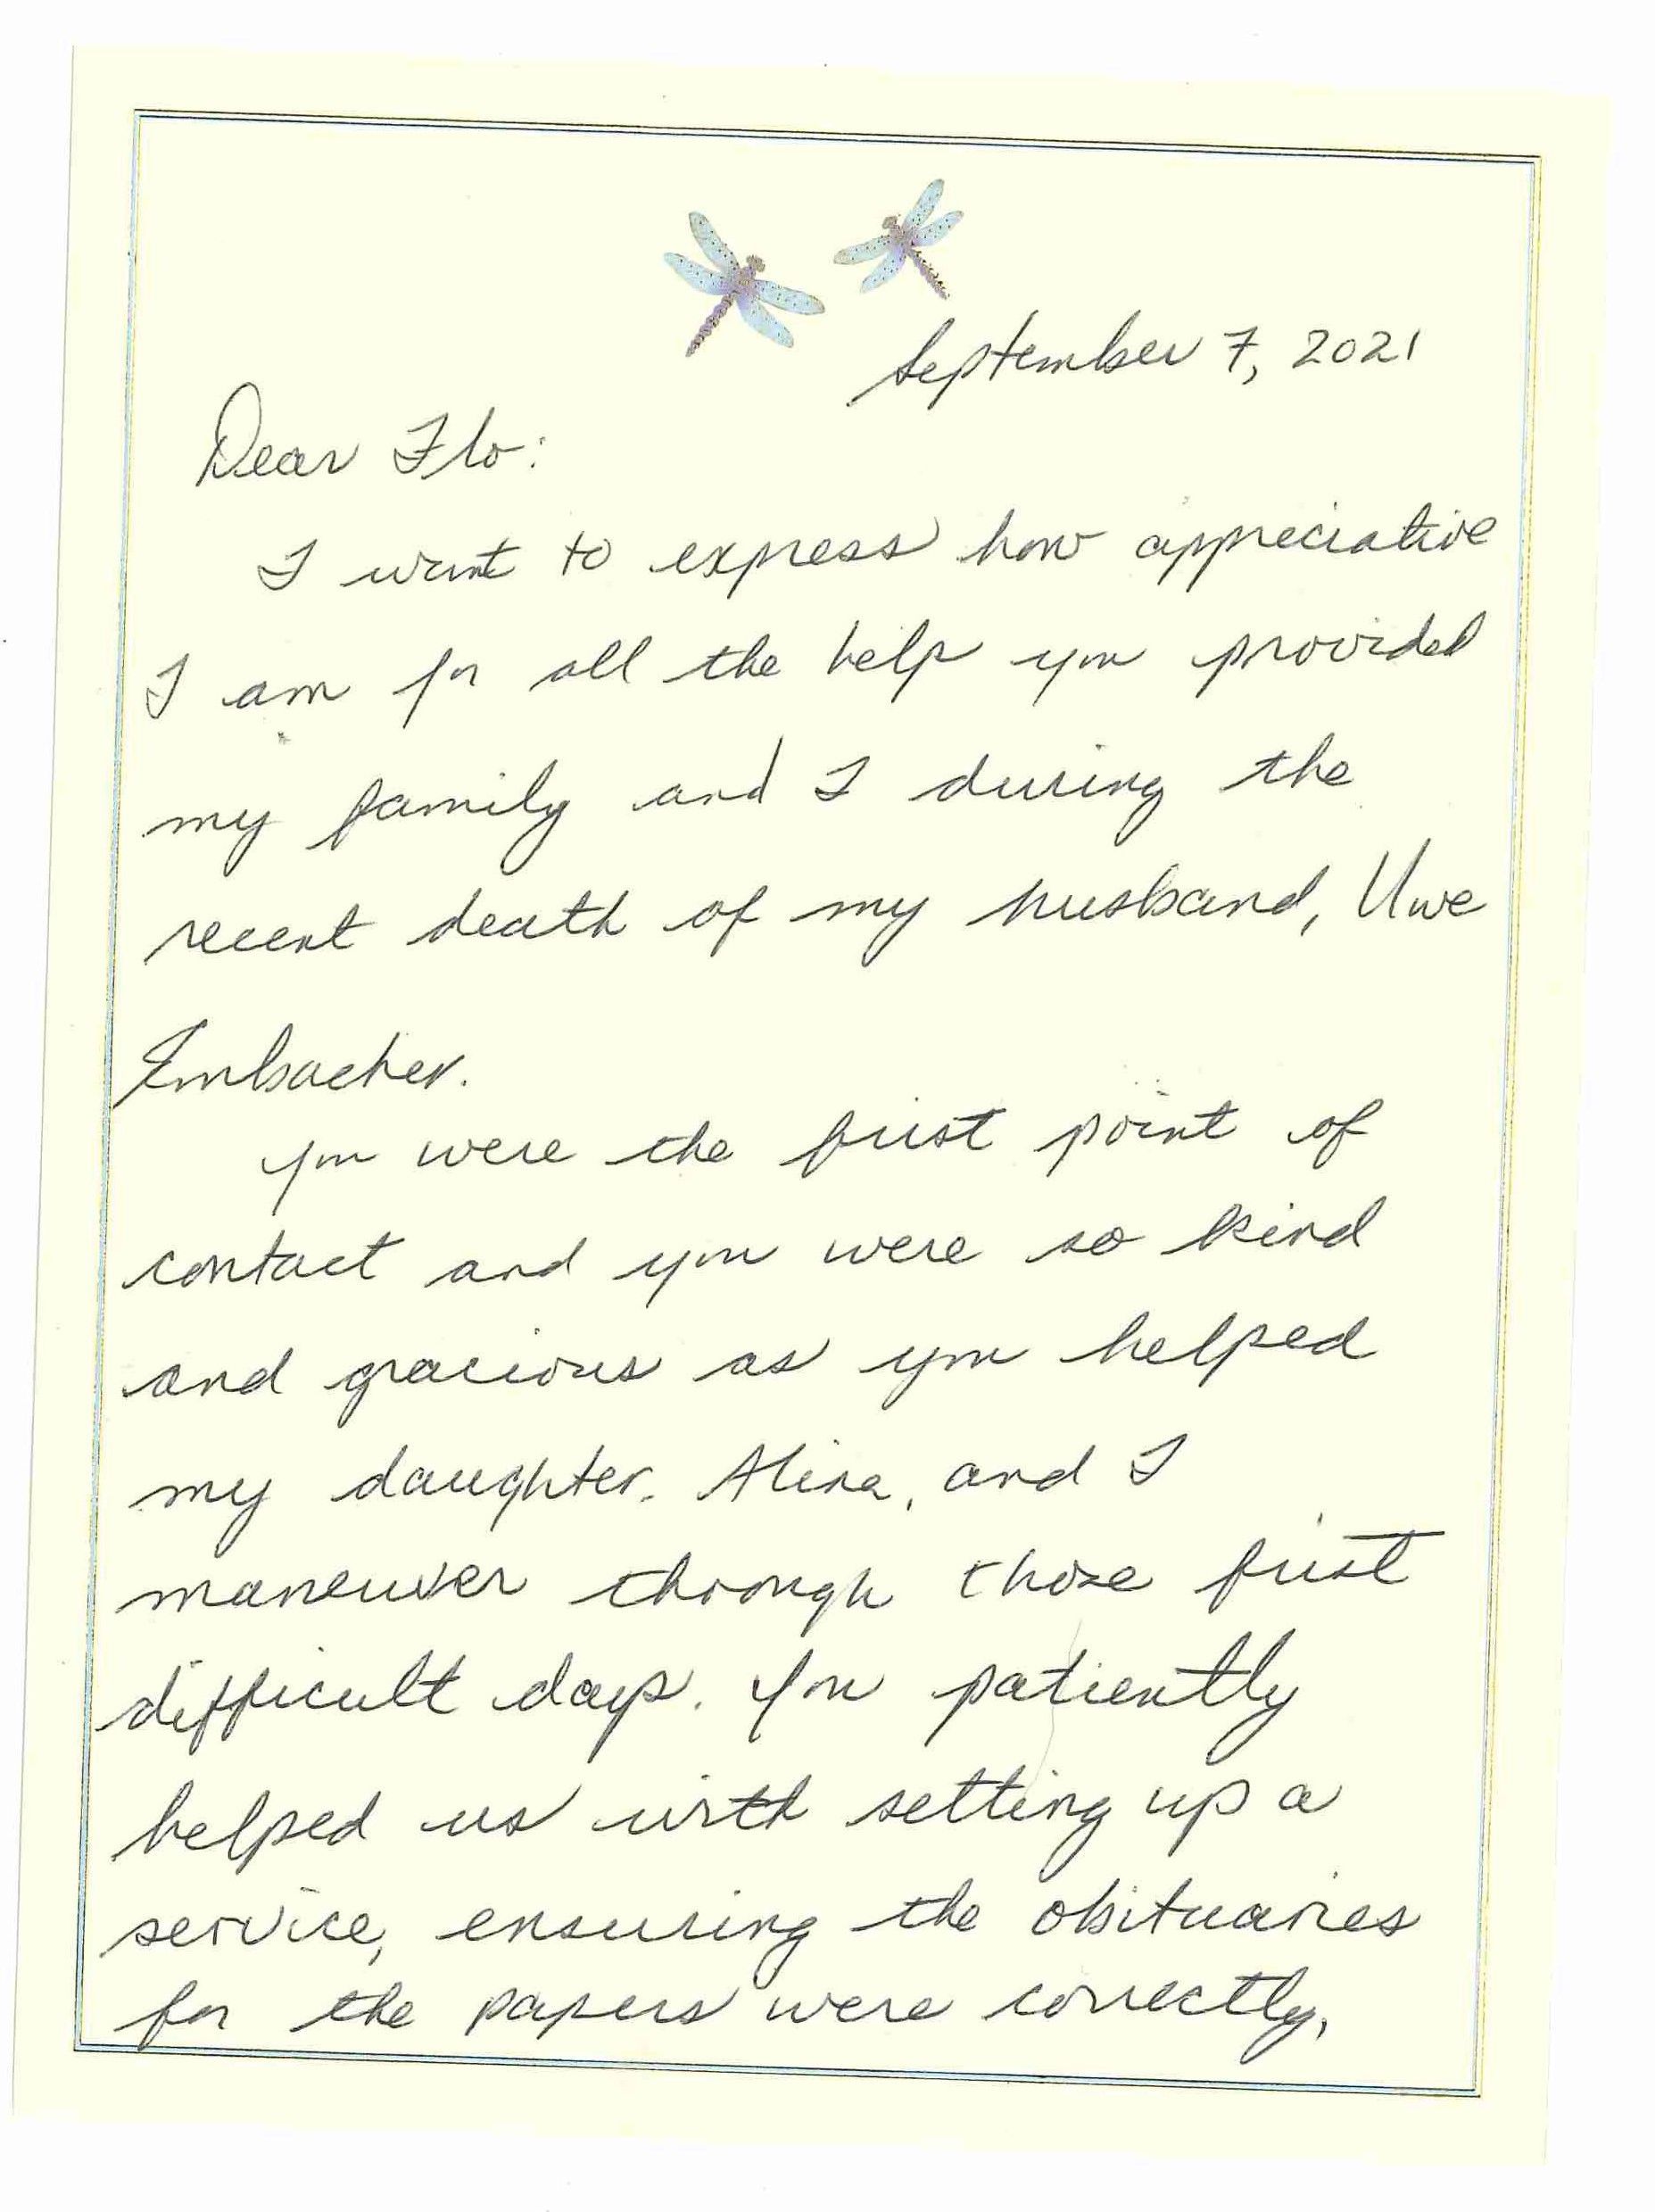 September 7, 2021
Dear Flo:
I want to express how appreciative
I am for all the help you provided
my family and I during the
recent death of my husband, Uwe
Embacher.
You were the first point of
contact and you were so kind
and gracious as you helped
my daughter, Alina, and I
maneuver through those first
difficult days. You patiently
helped us with setting up a
service, ensuring the obituaries
for the papers were correctly,